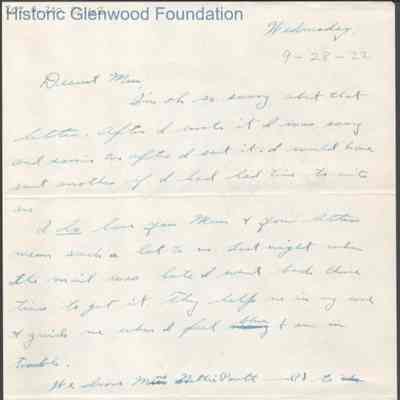 Historic Glenwood Foundation
Wednesday
9-28-22
Dearest Mum,
I'm oh so sorry about that
letter. After I wrote it I was sorry
and sorrier too after I sent it. I would have
sent another if I had had time to write
one.
I do love you Mum & your letters
mean such a lot to me. Last night when
the mail was late I went back three
times to get it. They help me in my work
& guide me when I feel & am in
trouble.
We have Miss to